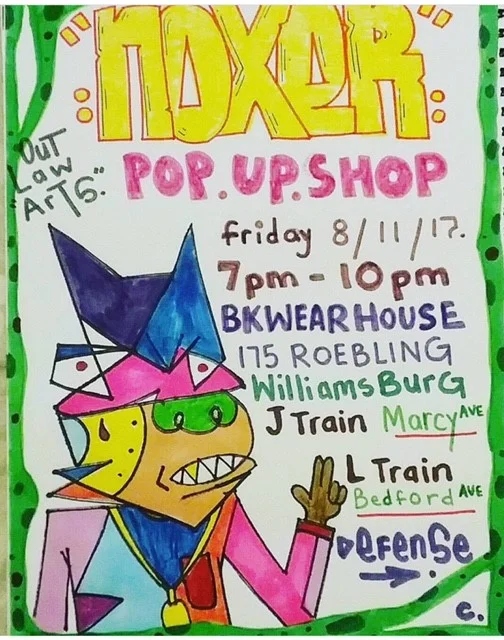 "NOXER"
OUT
LAW
"ARTS."
POP.UP.SHOP
friday 8/11/17.
7pm - 10pm
BKWEARHOUSE
175 ROEBLING
WilliamsBurG
J Train Marcy AVE
L Train
Bedford AVE
DEfENSE
c.